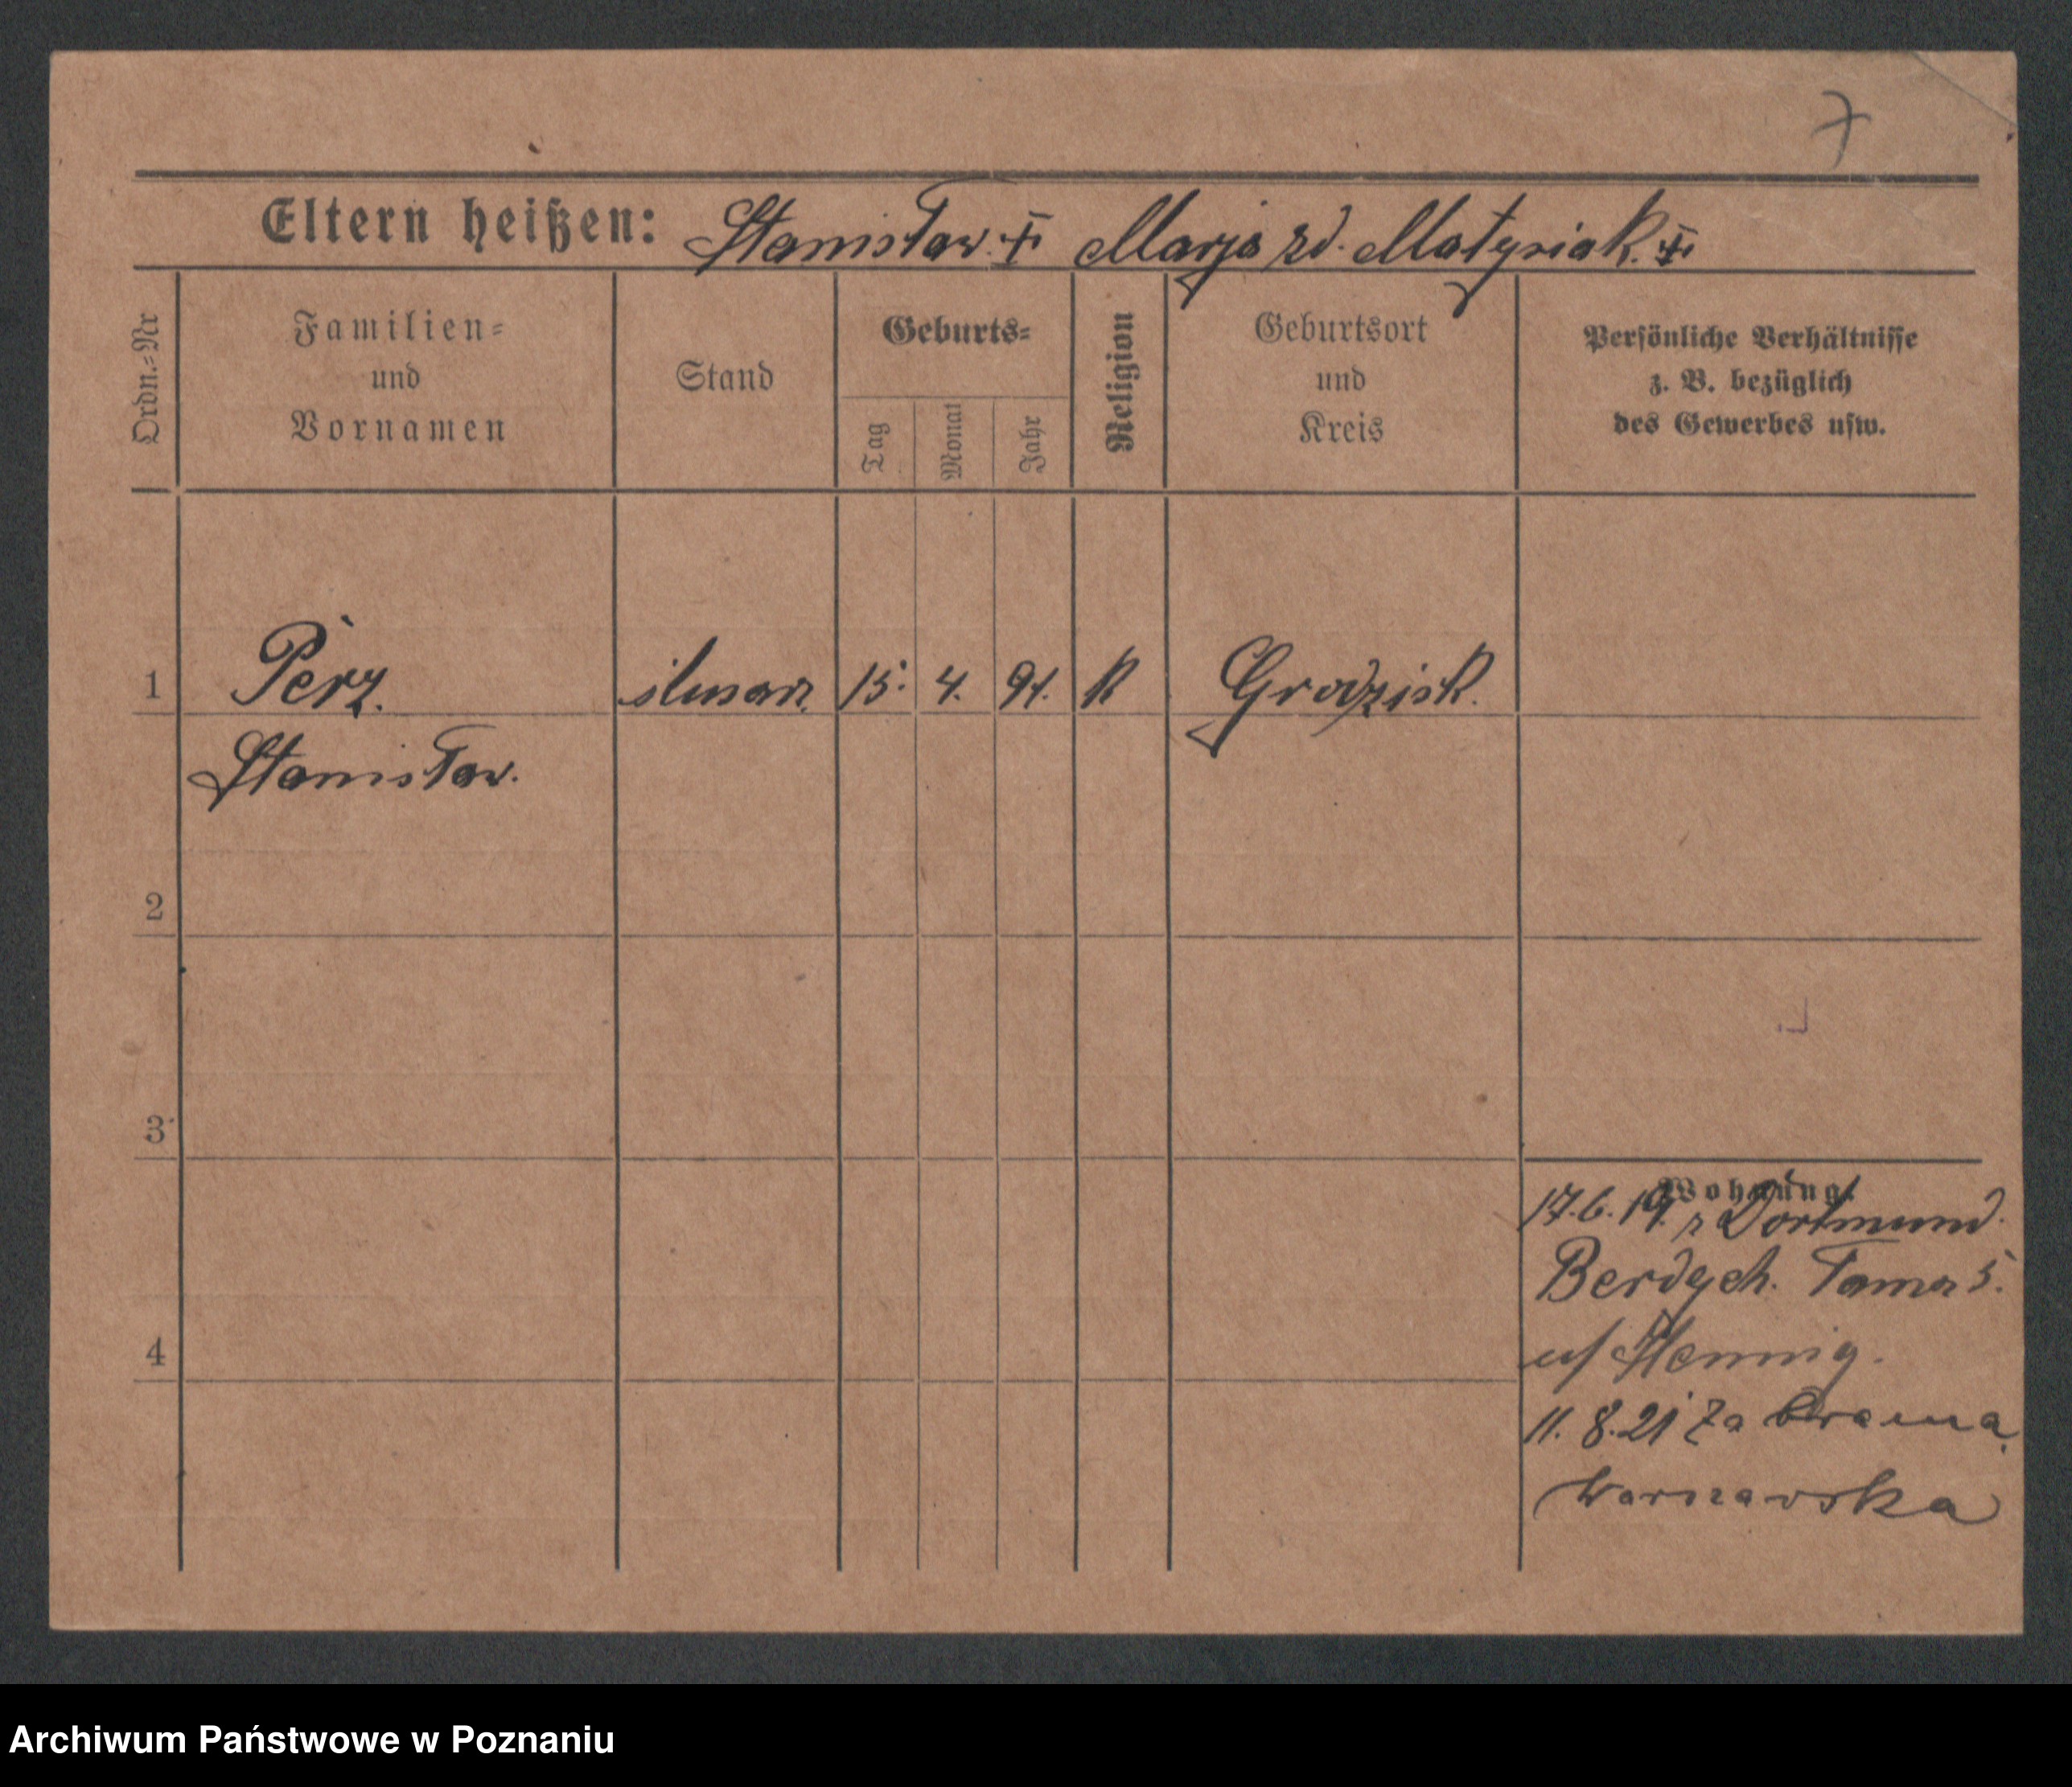 7
Eltern heißen: Stanisław. + Marja zd. Matysiak. +
Ordn.=Nr
Familien=
und
Vornamen
Stand
Geburts=
Tag
Monat
Jahr
Religion
Geburtsort
und
Kreis
Persönliche Verhältnisse
z. B. bezüglich
des Gewerbes usw.
1 Perz. ślusarz. 15. 4. 91. K Grodzisk.
Stanisław.
2
3
4
Wohnung.
17.6.19. z Dortmund.
Berdych. Tama 5.
u/ Hennig.
11. 8. 21 Za Bramą
Warszawska
Archiwum Państwowe w Poznaniu